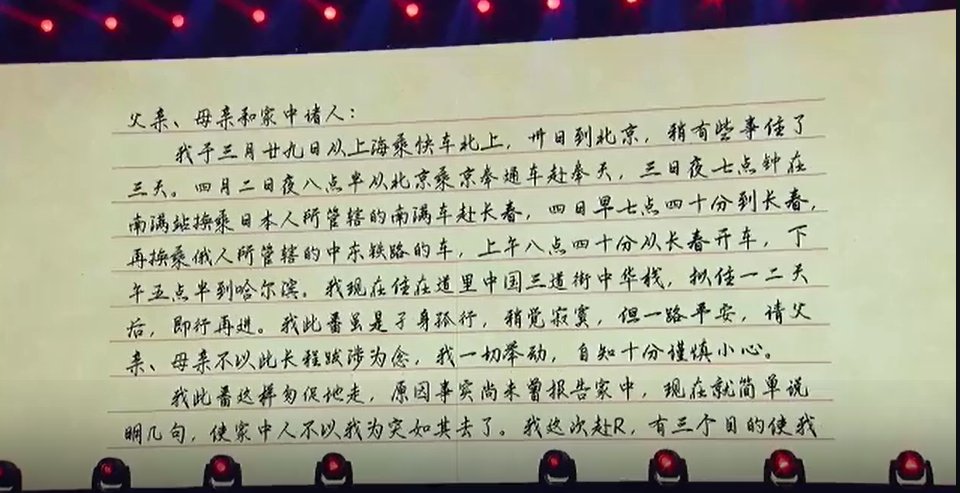 父亲、母亲和家中诸人：
我于三月廿九日以上海乘快车北上，卅日到北京，稍有些事住了
三天。四月二日夜八点半从北京乘京奉通车赴奉天，三日夜七点钟在
南满站换乘日本人所管辖的南满车赴长春，四日早七点四十分到长春，
再换乘俄人所管辖的中东铁路的车，上午八点四十分从长春开车，下
午五点半到哈尔滨。我现在住在道里中国三道街中华栈，拟住一二天
后，即行再进。我此番虽是孑身孤行，稍觉寂寞，但一路平安，请父
亲、母亲不以此长程跋涉为念，我一切举动，自知十分谨慎小心。
我此番这样匆促地走，原因事实尚未曾报告家中，现在就简单说
明几句，使家中人不以我为突如其去了。我这次赴R，有三个目的使我